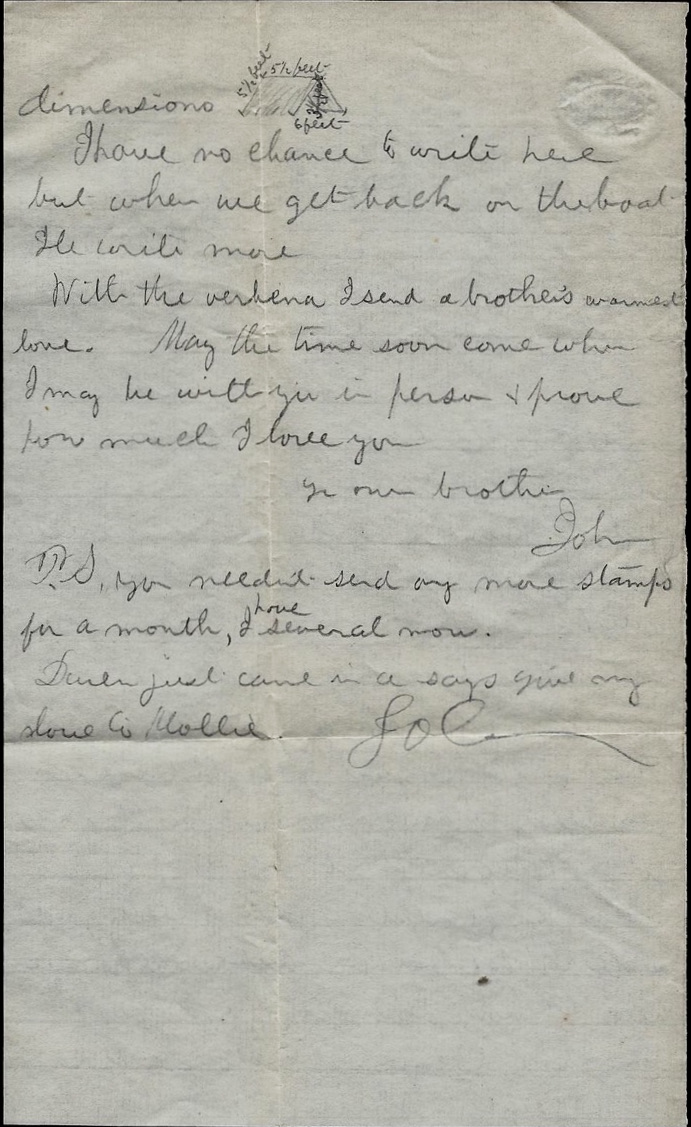 5½ feet
5½ feet
dimensions
6 feet
I have no chance to write here
but when we get back on the boat
Ile write more
With the verbena I send a brother's warmest
love. May the time soon come when
I may be with you in person & prove
how much I love you
Yr own brother
John
P.S, you needn't send any more stamps
for a month, I have several now.
just came in & says give my
love to Mollie